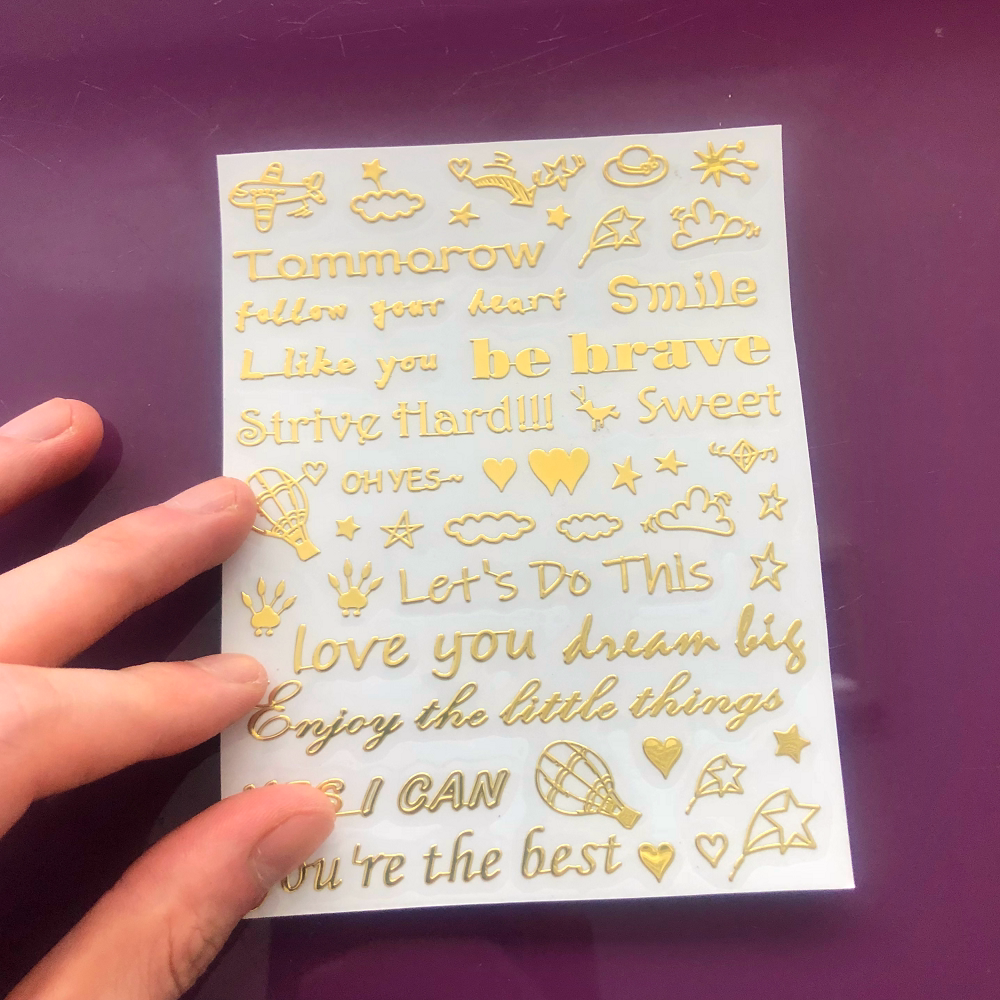 Tommorow
follow your heart Smile
I like you be brave
Strive Hard!!! Sweet
OH YES~
Let's Do This
love you dream big
Enjoy the little things
I CAN
the best